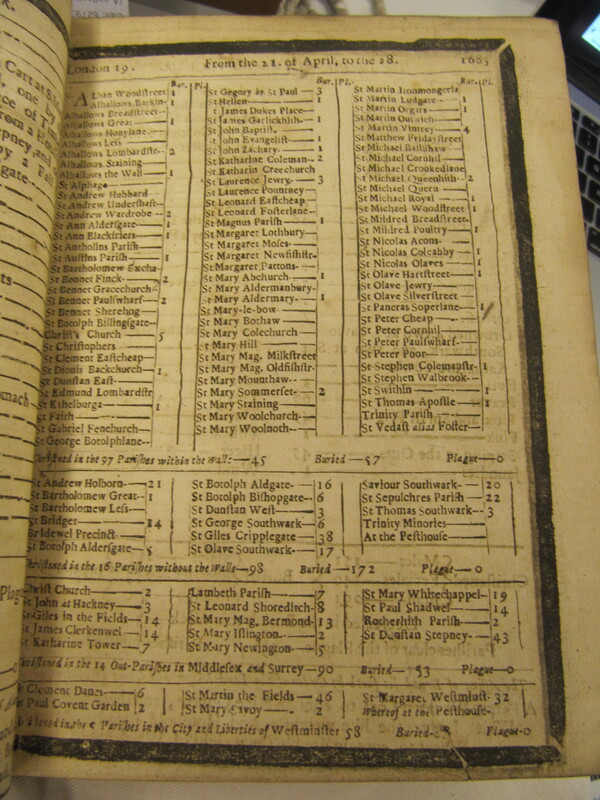 London 19. From the 21. of April, to the 28. 1685
Bur. Pl. Bur. Pl. Bur. Pl.
Alban Woodstreet 1
Alhallows Barkin 1
Alhallows Breadstreet
Alhallows Great 1
Alhallows Honylane
Alhallows Less
Alhallows Lombardstr 2
Alhallows Staining
Alhallows the Wall 1
St Alphage
St Andrew Hubbard
St Andrew Undershaft
St Andrew Wardrobe 2
St Ann Aldersgate 1
St Ann Blackfriers 1
St Antholins Parish
St Austins Parish 1
St Bartholomew Excha
St Bennet Finck 2
St Bennet Gracechurch
St Bennet Paulswharf 2
St Bennet Sherehog
St Botolph Billingsgate
Christ's Church 5
St Christophers
St Clement Eastcheap
St Dionis Backchurch 1
St Dunstan East
St Edmund Lombardstr
St Ethelburga 1
St Faith
St Gabriel Fenchurch
St George Botolphlane
St Gegory by St Paul 3
St Hellen 1
St James Dukes Place
St James Garlickhith 1
St John Baptist
St John Evangelist 1
St John Zachary 1
St Katharine Coleman 2
St Katharin Creechurch
St Laurence Jewry 3
St Laurence Pountney
St Leonard Eastcheap
St Leonard Fosterlane
St Magnus Parish 1
St Margaret Lothbury
St Margaret Moses
St Margaret Newfishstr
St Margaret Pattons
St Mary Abchurch 1
St Mary Aldermanbury
St Mary Aldermary 1
St Mary-le-bow
St Mary Bothaw
St Mary Colechurch
St Mary Hill
St Mary Mag. Milkstreet
St Mary Mag. Oldfishstr
St Mary Mounthaw
St Mary Sommerset 2
St Mary Staining
St Mary Woolchurch
St Mary Woolnoth
St Martin Ironmongerla
St Martin Ludgate 1
St Martin Orgars 1
St Martin Outwich
St Martin Vintrey 4
St Matthew Fridaystreet
St Michael Bassishaw
St Michael Cornhil
St Michael Crookedlane
St Michael Queenhith 2
St Michael Quern
St Michael Royal 1
St Michael Woodstreet 1
St Mildred Breadstreet
St Mildred Poultry 1
St Nicolas Acons
St Nicolas Coleabby 1
St Nicolas Olaves 1
St Olave Hartstreet 1
St Olave Jewry
St Olave Silverstreet
St Pancras Soperlane 1
St Peter Cheap
St Peter Cornhil
St Peter Paulswharf
St Peter Poor
St Stephen Colemanstr 1
St Stephen Walbrook
St Swithin 1
St Thomas Apostle 1
Trinity Parish
St Vedast alias Foster
Christned in the 97 Parishes within the Walls 45 Buried 57 Plague 0
St Andrew Holborn 21
St Bartholomew Great 1
St Bartholomew Less
St Bridget 14
Bridewel Precinct
St Botolph Aldersgate 5
St Botolph Aldgate 16
St Botolph Bishopgate 6
St Dunstan West 3
St George Southwark 6
St Giles Cripplegate 38
St Olave Southwark 17
Saviour Southwark 20
St Sepulchres Parish 22
St Thomas Southwark 3
Trinity Minories
At the Pesthouse
Christned in the 16 Parishes without the Walls 98 Buried 172 Plague 0
Christ Church 2
St John at Hackney 3
St Giles in the Fields 14
St James Clerkenwel 14
St Katharine Tower 7
Lambeth Parish 7
St Leonard Shoreditch 8
St Mary Mag. Bermond 13
St Mary Islington 2
St Mary Newington 5
St Mary Whitechappel 19
St Paul Shadwel 14
Rotherhith Parish 2
St Dunstan Stepney 43
Christned in the 14 Out-Parishes in Middlesex and Surrey 90 Buried 53 Plague 0
St Clement Danes 6
St Paul Covent Garden 2
St Martin the Fields 46
St Mary Savoy 2
St Margaret Westminst. 32
Whereof at the Pesthouse
Parishes in the City and Liberties of Westminster 58 Buried Plague 0